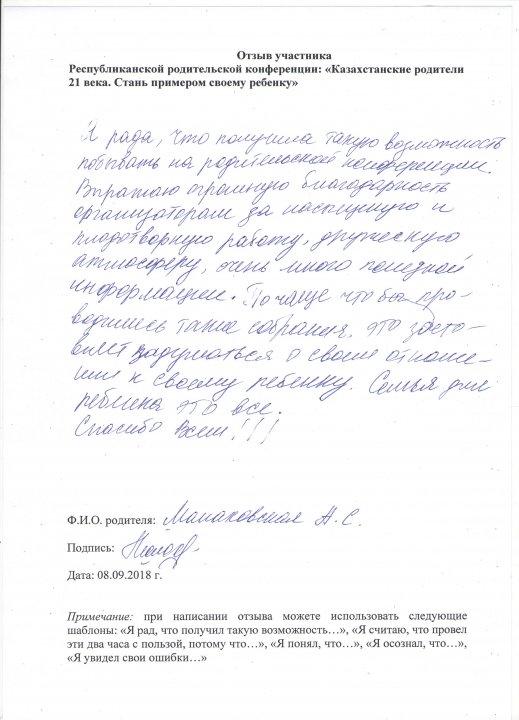 Отзыв участника
Республиканской родительской конференции: «Казахстанские родители
21 века. Стань примером своему ребенку»
Я рада, что получила такую возможность
побывать на родительской конференции.
Выражаю огромную благодарность
организаторам за насыщную и
плодотворную работу, дружескую
атмосферу, очень много полезной
информации. Почаще что бы про-
водились такие собрания. это заста-
вляет задуматься о своем отноше-
нии к своему ребенку. Семья для
ребенка это все.
Спасибо Всем!!!
Ф.И.О. родителя: А. С.
Подпись:
Дата: 08.09.2018 г.
Примечание: при написании отзыва можете использовать следующие
шаблоны: «Я рад, что получил такую возможность…», «Я считаю, что провел
эти два часа с пользой, потому что…», «Я понял, что…», «Я осознал, что…»,
«Я увидел свои ошибки…»